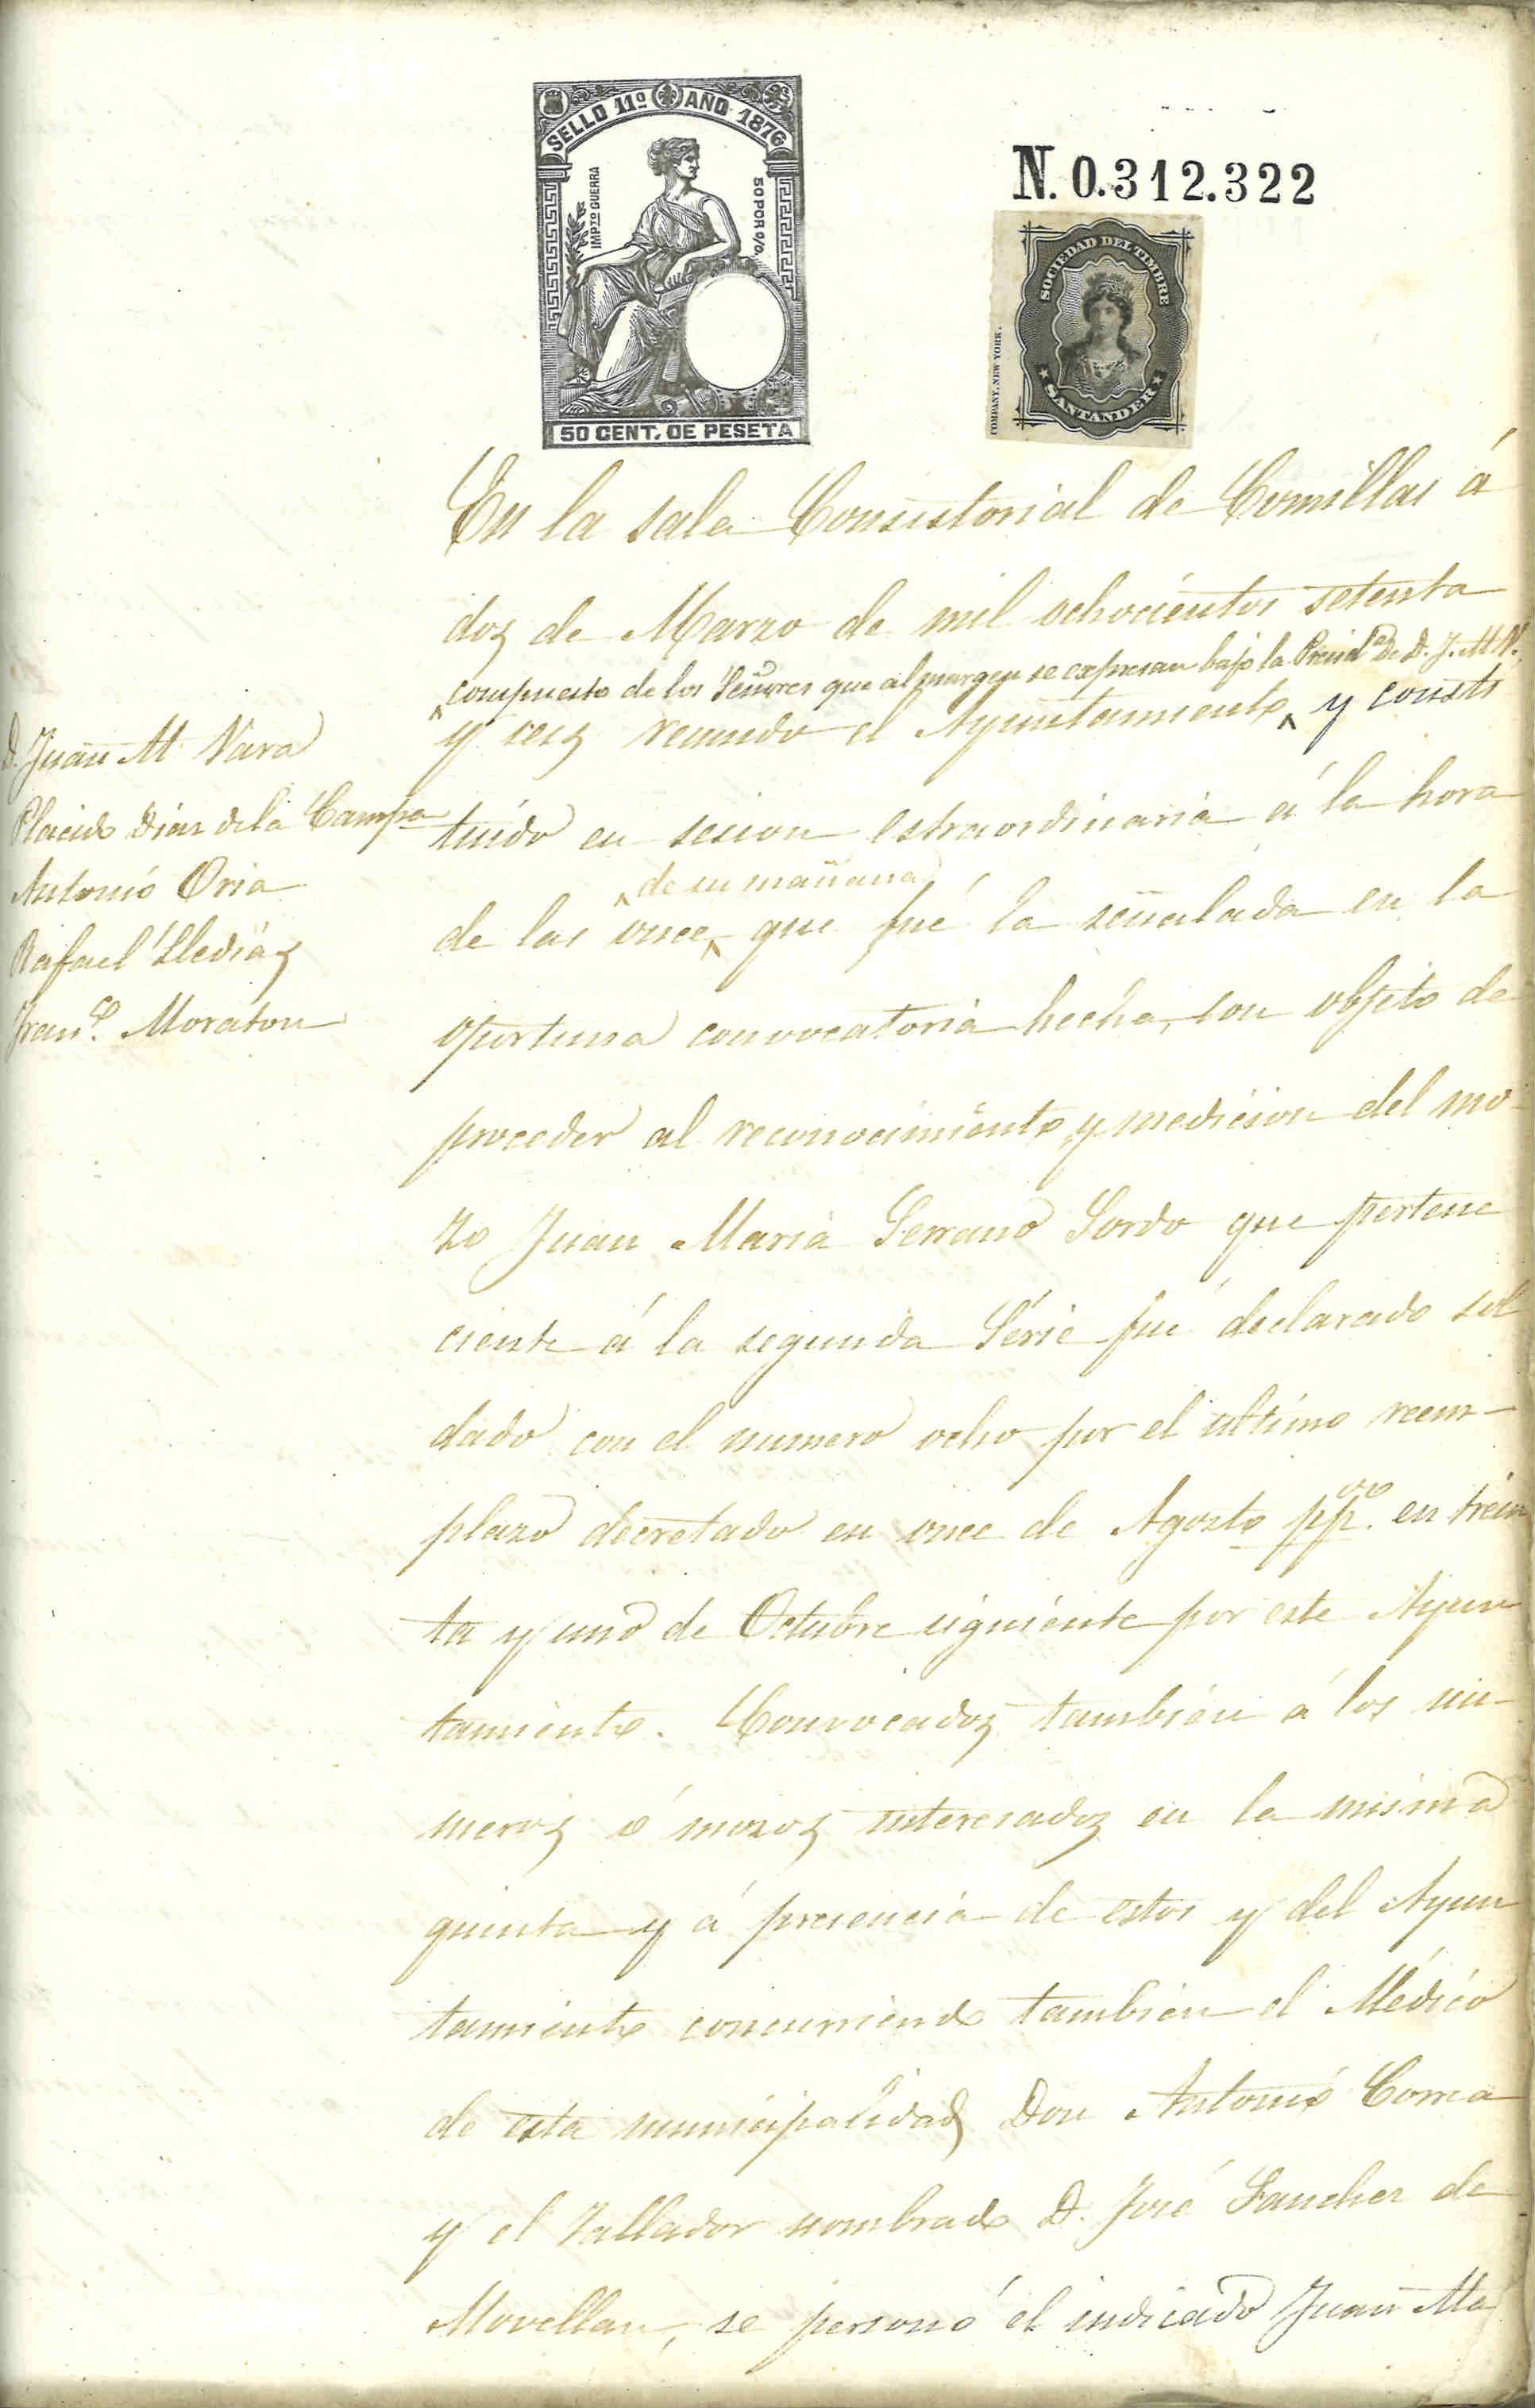 SELLO 11º AÑO 1876
IMPTO GUERRA
50 POR 0/0.
50 CENT. DE PESETA
N. 0.312.322
SOCIEDAD DEL TIMBRE
SANTANDER
COMPANY, NEW YORK.
En la sala Consistorial de Comillas á
dos de Marzo de mil ochocientos setenta
compuesto de los Señores que al margen se expresan bajo la Presid.ª De D. J. M. V.
y seis reunido el Ayuntamiento y consti
tuido en sesion estraordinaria á la hora
de su mañana
de las once que fué la señalada en la
oportuna convocatoria hecha, con objeto de
proceder al reconocimiento y medicion del mo-
zo Juan Maria Serrano Sordo que pertene
ciente á la segunda Série fué declarado sol
dado con el numero ocho por el ultimo reem-
plazo decretado en once de Agosto pp.º en trein
ta y uno de Octubre siguiente por este Ayun
tamiento. Convocados tambien á los nu-
meros ó mozos interesados en la misma
quinta y á presencia de estos y del Ayun
tamiento concurriendo tambien el Médico
de esta municipalidad Don Antonio Correa
y el Tallador nombrado D. José Sanchez de
Movellan, se personó el indicado Juan Ma
D. Juan M Vara
Placido Diaz de la Campa
Antonio Oria
Rafael
Fran.co Moraton